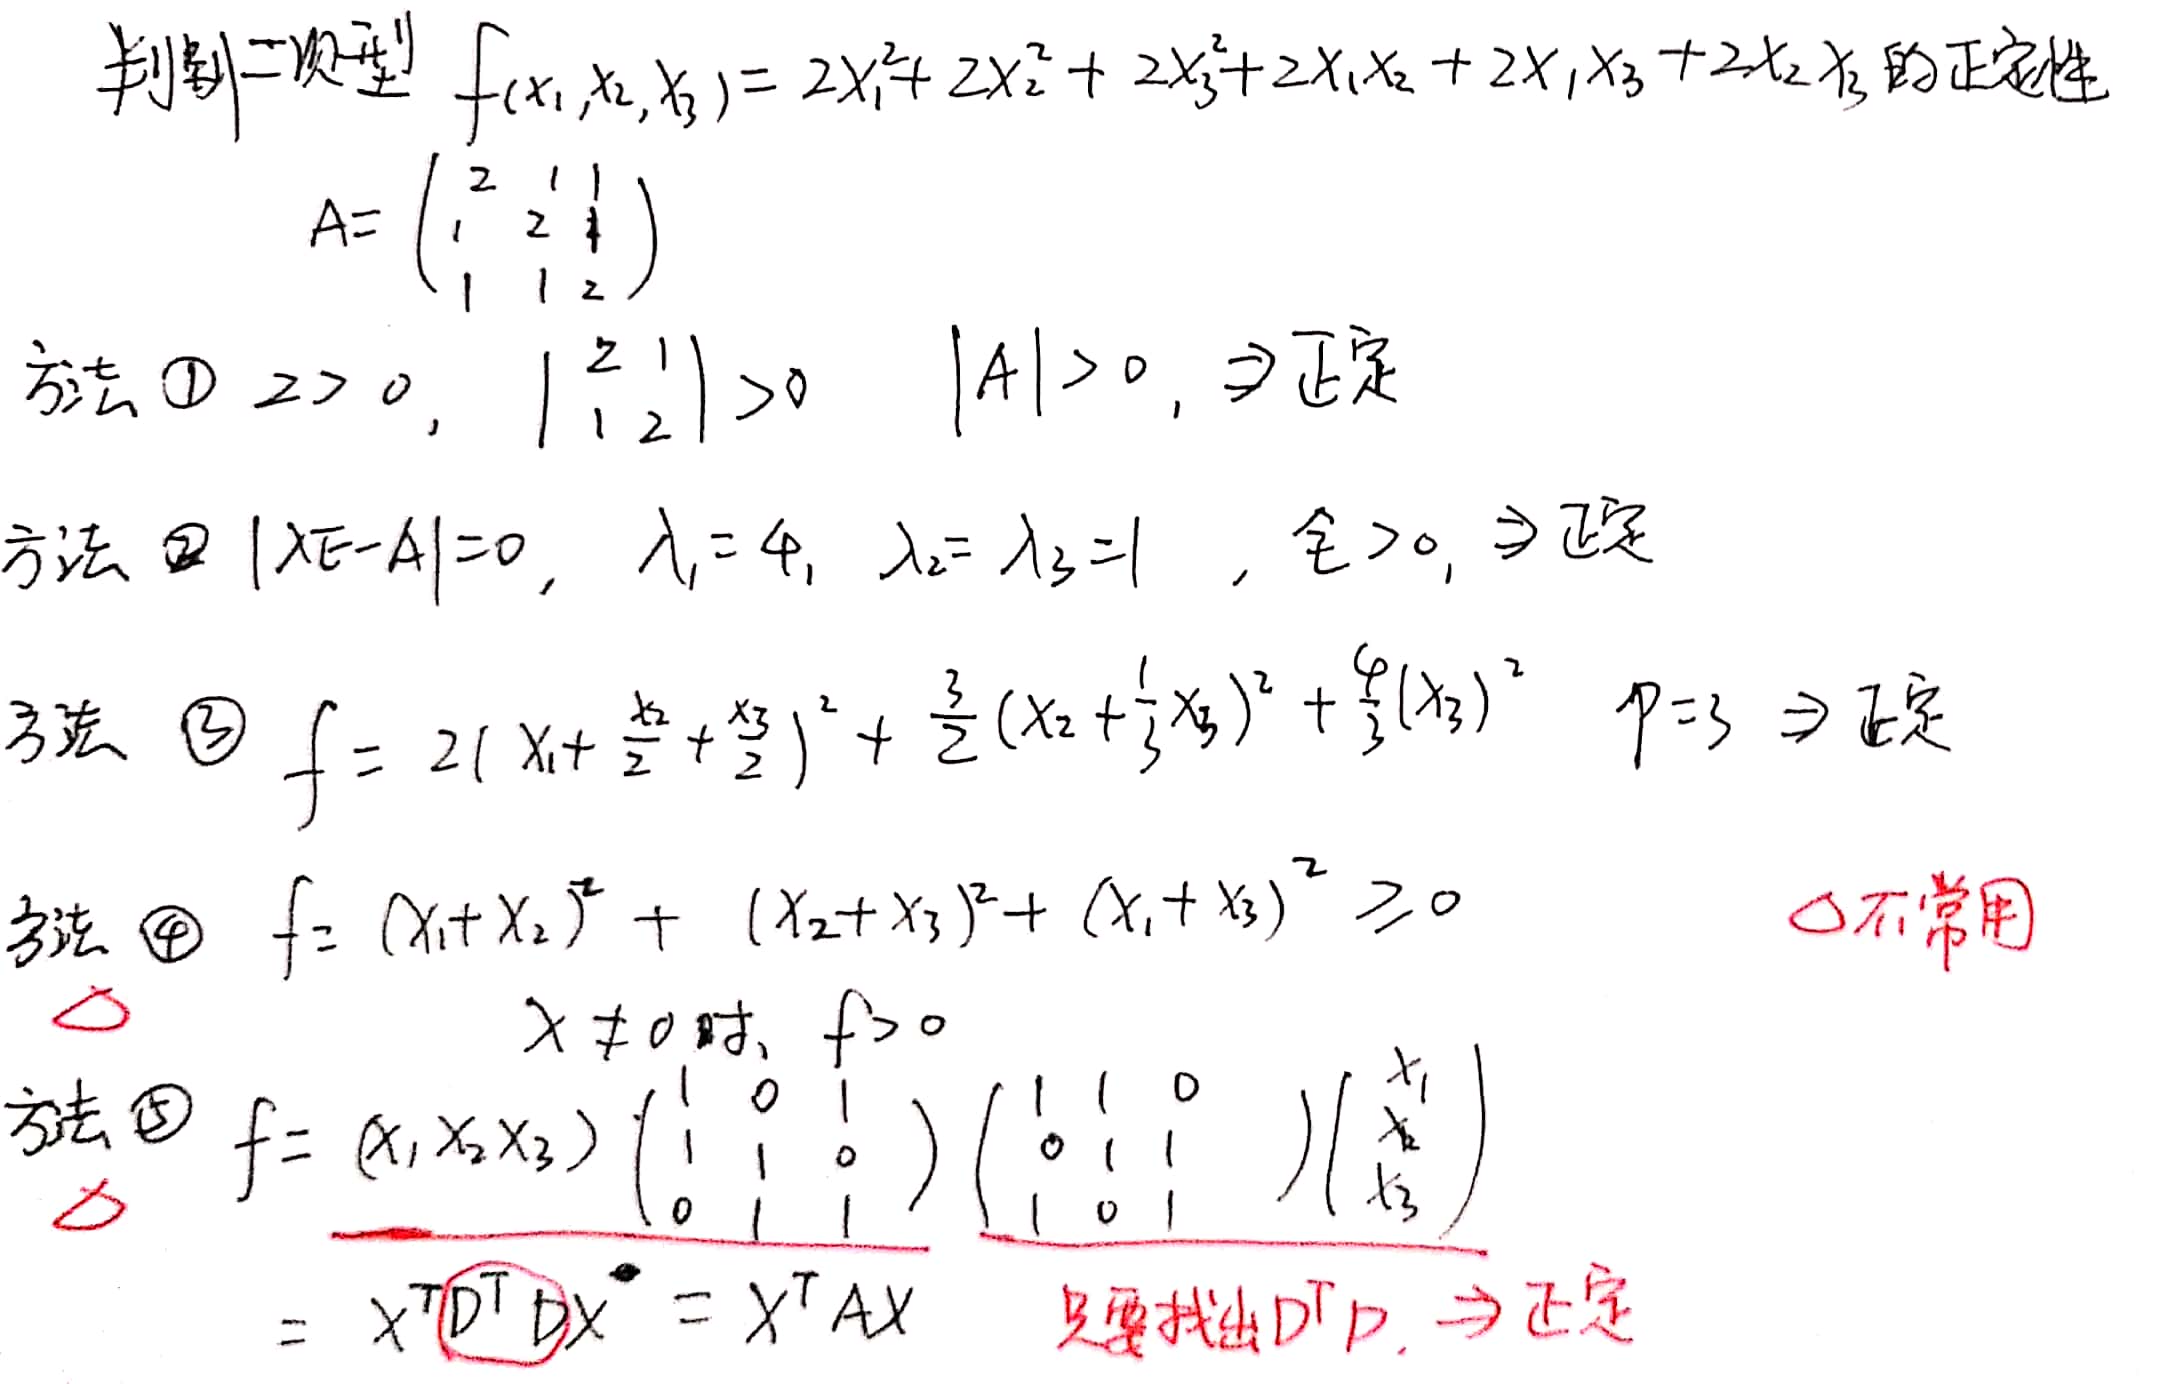 判别二次型 f(x₁,x₂,x₃)=2x₁²+2x₂²+2x₃²+2x₁x₂+2x₁x₃+2x₂x₃的正定性
A=(2 1 1
1 2 1
1 1 2)
方法① 2>0, |2 1
1 2|>0 |A|>0, ⇒正定
方法② |λE-A|=0, λ₁=4, λ₂=λ₃=1, 全>0, ⇒正定
方法③ f=2(x₁+x₂/2+x₃/2)²+3/2(x₂+1/3x₃)²+4/3(x₃)² p=3⇒正定
方法④ f=(x₁+x₂)²+(x₂+x₃)²+(x₁+x₃)²≥0 △不常用
△ x≠0时, f>0
方法⑤ f=(x₁x₂x₃)(1 0 1
1 1 0
0 1 1)(1 1 0
0 1 1
1 0 1)(x₁
x₂
x₃)
△
=xᵀDᵀDx=xᵀAx 只要找出DᵀD.⇒正定